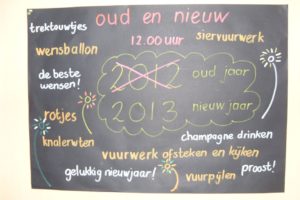 oud en nieuw
trektouwtjes
12.00 uur
siervuurwerk
wensballon
de beste
wensen!
2012 oud jaar
2013 nieuw jaar
rotjes
knalerwten
champagne drinken
vuurwerk afsteken en kijken
gelukkig nieuwjaar!
vuurpijlen
proost!